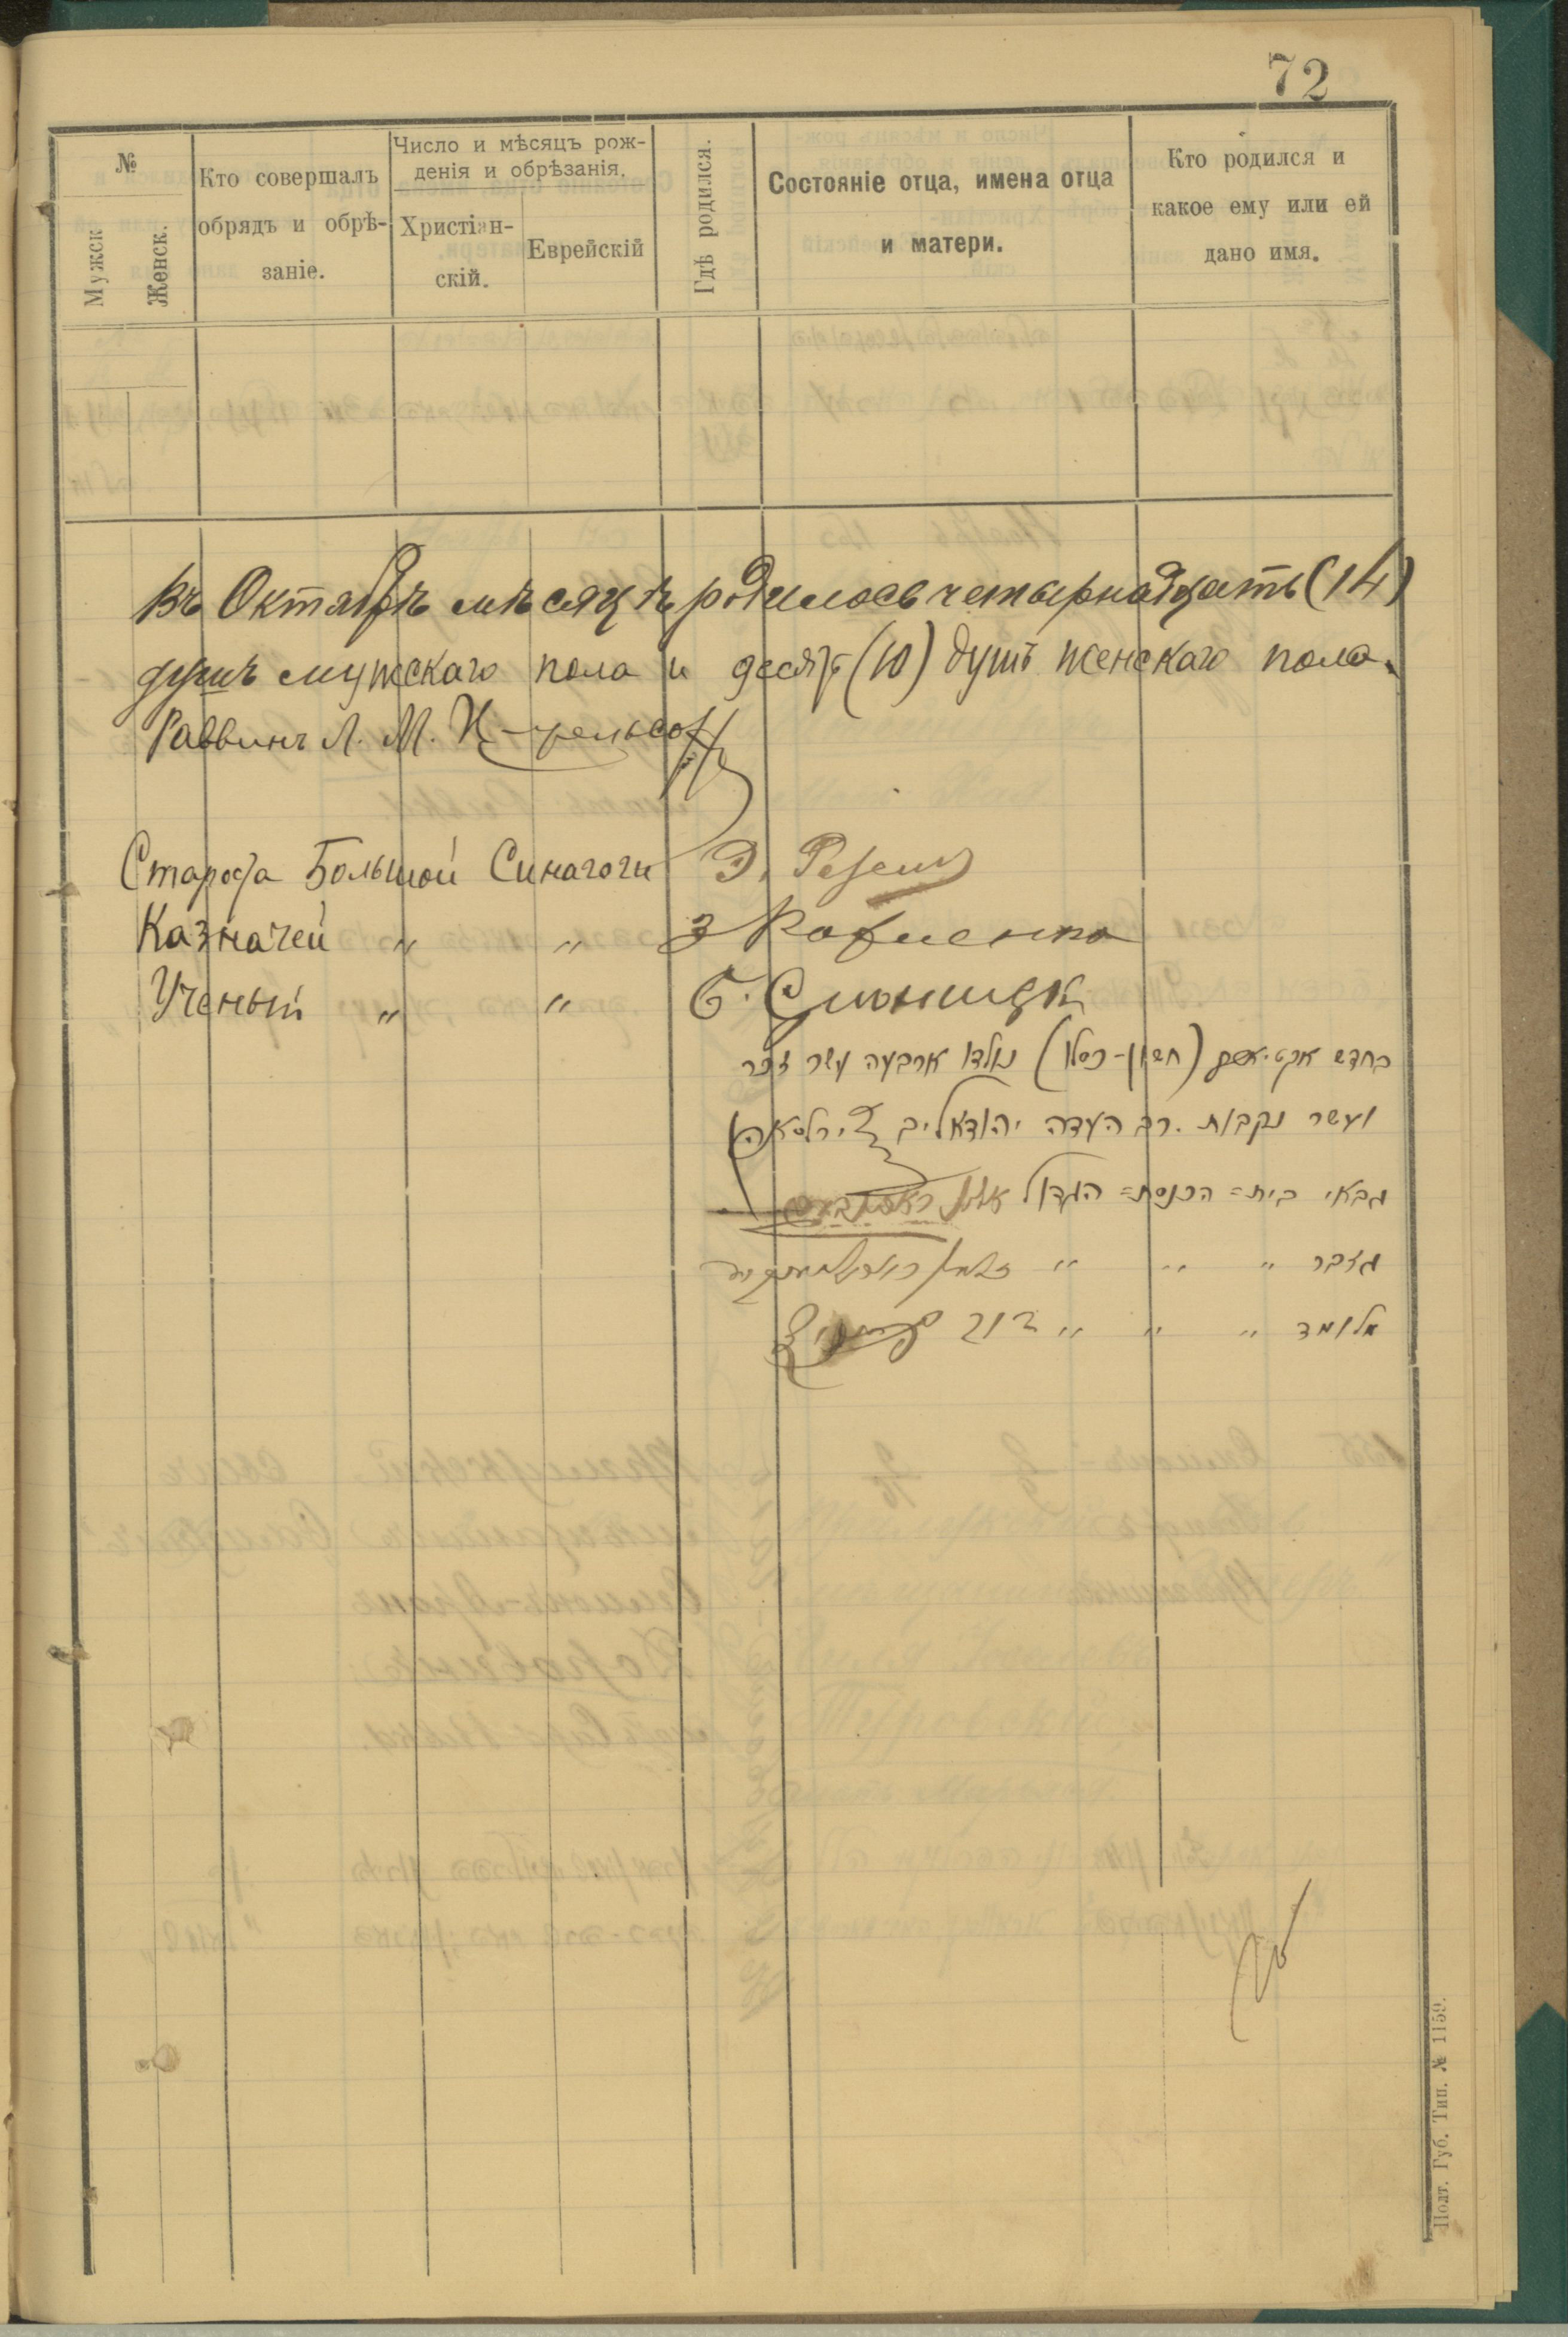 72
№
Мужск
Женск.
Кто совершалъ
обрядъ и обрѣ-
заніе.
Число и мѣсяцъ рож-
денія и обрѣзанія.
Христіан-
скій.
Еврейскій
Гдѣ родился.
Состояніе отца, имена отца
и матери.
Кто родился и
какое ему или ей
дано имя.
Въ Октябрѣ мѣсяцѣ родилось четырнадцать (14)
душъ мужскаго пола и десять (10) душъ женскаго пола.
Раввинъ Л. М. Цирельсон
Староста Большой Синагоги Э.
Казначей „ „ З
Ученый „ „ Б.
בחדש (חשון-כסלו) נולדו ארבעה עשר זכר
ועשר נקבות. רב העדה יהודאליב צירלסאהן
גבאי בית= הכנסת= הגדול
גזבר „ „ „ זלמן
מלומד „ „ „ דוב
Полт. Губ. Тип. № 1159.